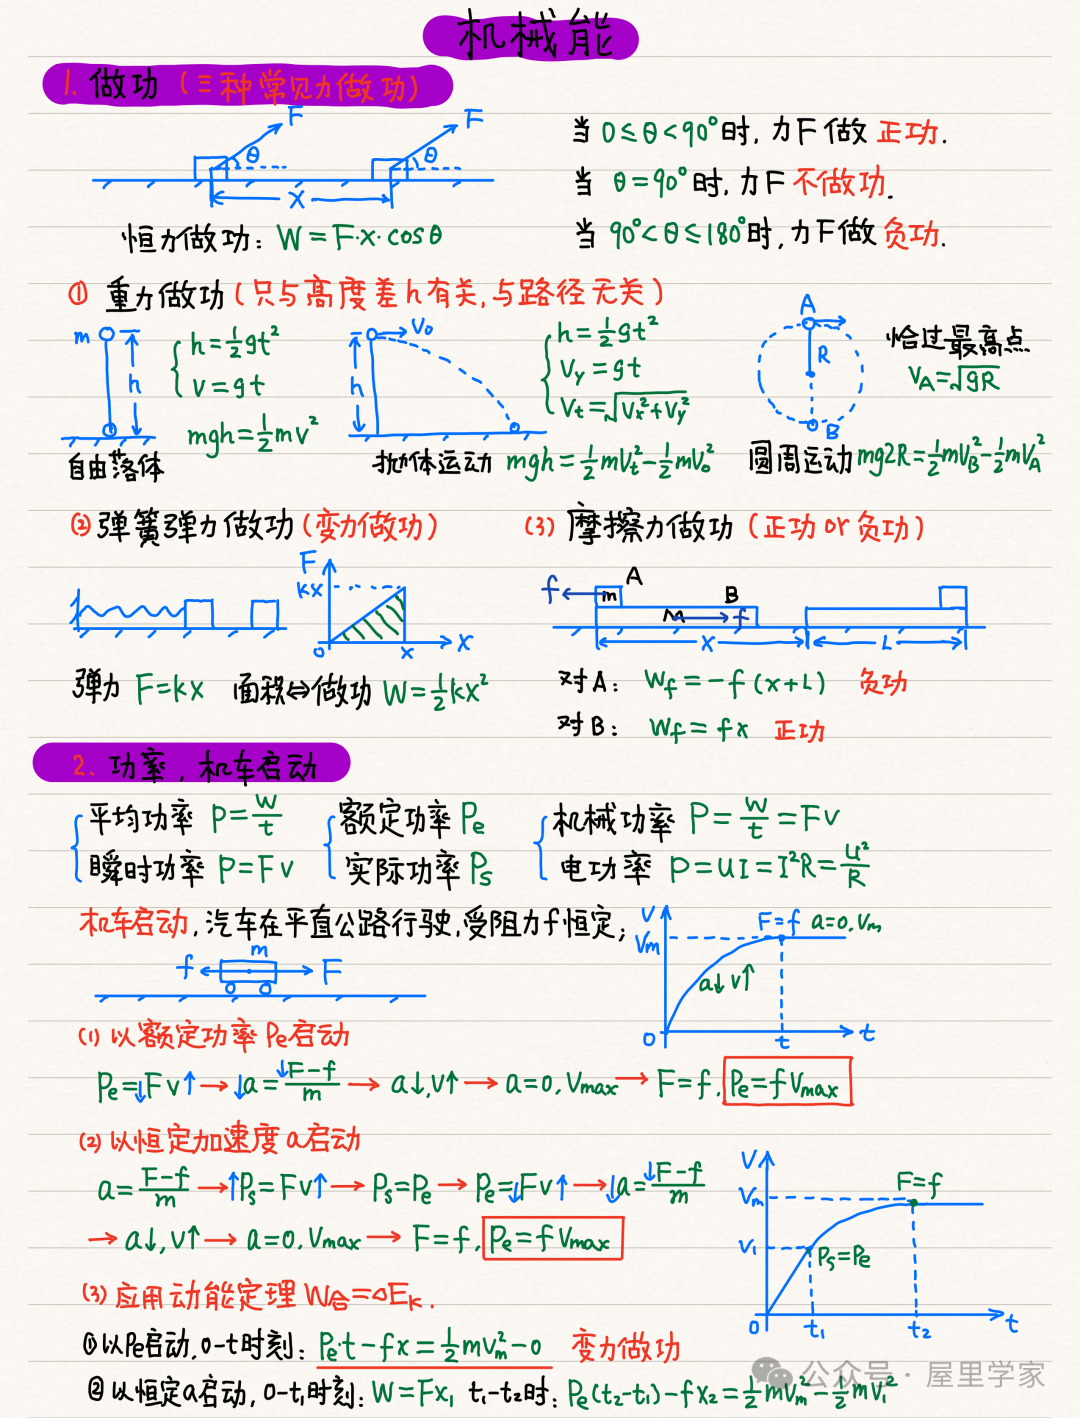 机械能
1. 做功 (三种常见力做功)
F F
θ θ
x
当 0≤θ<90°时, 力F做 正功.
当 θ=90°时, 力F 不做功.
当 90°<θ≤180°时, 力F做 负功.
恒力做功: W=F·x·cosθ
① 重力做功 (只与高度差h有关, 与路径无关)
m h
h=½gt²
v=gt
mgh=½mv²
自由落体
V₀ h
h=½gt²
Vy=gt
Vt=√(Vx²+Vy²)
抛体运动 mgh=½mVt²-½mV₀²
A
R
B
恰过最高点
VA=√gR
圆周运动 mg2R=½mVB²-½mVA²
② 弹簧弹力做功 (变力做功)
F
kx
o x x
弹力 F=kx 面积⇔做功 W=½kx²
(3) 摩擦力做功 (正功 or 负功)
f m A
M f B
x L
对A: Wf=-f(x+L) 负功
对B: Wf=fx 正功
2. 功率, 机车启动
平均功率 P=W/t
瞬时功率 P=Fv
额定功率 Pe
实际功率 Ps
机械功率 P=W/t=Fv
电功率 P=UI=I²R=U²/R
机车启动, 汽车在平直公路行驶, 受阻力f恒定;
f m F
V
Vm
F=f a=0, Vm
a↓ v↑
o t t
(1) 以额定功率Pe启动
Pe=↓Fv↑→↓a=↓F-f/m→a↓,v↑→a=0, Vmax→F=f, Pe=fVmax
(2) 以恒定加速度a启动
a=F-f/m→↑Ps=Fv↑→Ps=Pe→Pe=↓Fv↑→↓a=↓F-f/m
→a↓, v↑→a=0, Vmax→F=f, Pe=fVmax
V
Vm
V₁
F=f
Ps=Pe
o t₁ t₂ t
(3) 应用动能定理 W合=△Ek.
①以Pe启动, 0-t时刻: Pe·t-fx=½mvm²-0 变力做功
②以恒定a启动, 0-t₁时刻: W=Fx₁ t₁-t₂时: Pe(t₂-t₁)-fx₂=½mVm²-½mV₁²
公众号·屋里学家